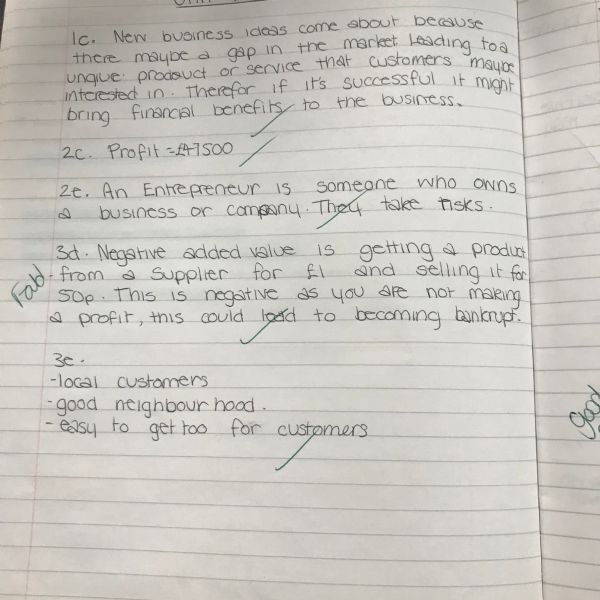 1c. New business ideas come about because
there maybe a gap in the market leading to a
unqiue prodouct or service that customers maybe
interested in. Therefor if it's successful it might
bring financial benefits to the business.
2c. Profit = £47500
2e. An Entrepreneur is someone who owns
a business or company. They take risks.
3d. Negative added value is getting a product
Fab - from a supplier for £1 and selling it for
50p. This is negative as you are not making
a profit, this could lead to becoming bankrupt.
3e.
- local customers
- good neighbourhood.
- easy to get too for customers
good